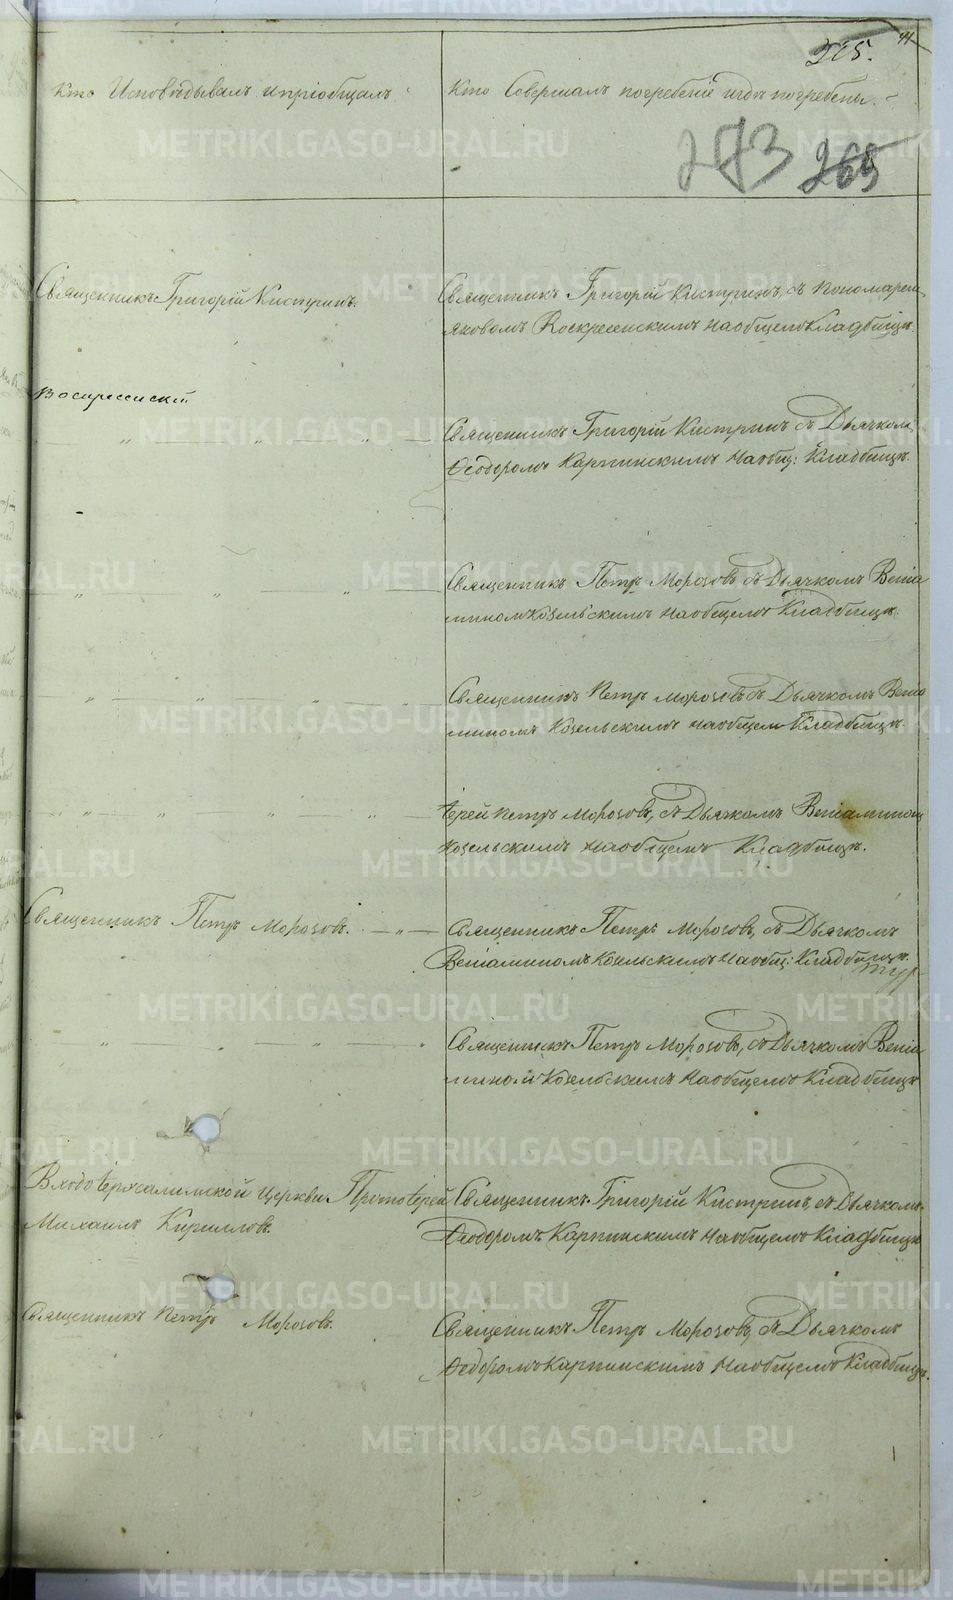 41
265.
Кто Исповѣдывалъ и пріобщалъ
Кто Совершалъ погребеніе и гдѣ погребены.
273 265
Священникъ Григорій Кистринъ.
Священникъ Григорій Кистринъ, съ Пономаремъ
Яковомъ Воскресенскимъ на общемъ Кладбищѣ.
Воскресенскій
Священникъ Григорій Кистринъ съ Дьячкомъ
Ѳеодоромъ Карпинскимъ На общ: Кладбищѣ.
Священникъ Петръ Морозовъ, съ Дьячкомъ Веніа
миномъ Козельскимъ На общемъ Кладбищѣ.
Священникъ Петръ Морозовъ съ Дьячкомъ Веніа
миномъ Козельскимъ на общем Кладбищѣ.
Іерей Петръ Морозовъ, съ Дьячкомъ Веніаминомъ
Козельскимъ На общемъ Кладбищѣ.
Священникъ Петръ Морозовъ.
Священникъ Петръ Морозовъ, съ Дьячкомъ
Веніаминомъ Козельскимъ На общ: Кладбищѣ.
Священникъ Петръ Морозовъ, съ Дьячкомъ Веніа
миномъ Козельскимъ На общемъ Кладбищѣ
Входоіерусалимской Церкви Протоіерей
Михаилъ Кирилловъ.
Священникъ Григорій Кистринъ, съ Дьячкомъ
Ѳеодоромъ Карпинскимъ На общемъ Кладбищѣ
Священникъ Петръ Морозовъ.
Священникъ Петръ Морозовъ, съ Дьячкомъ
Ѳедоромъ Карпинскимъ На общемъ Кладбищѣ.
METRIKI.GASO-URAL.RU